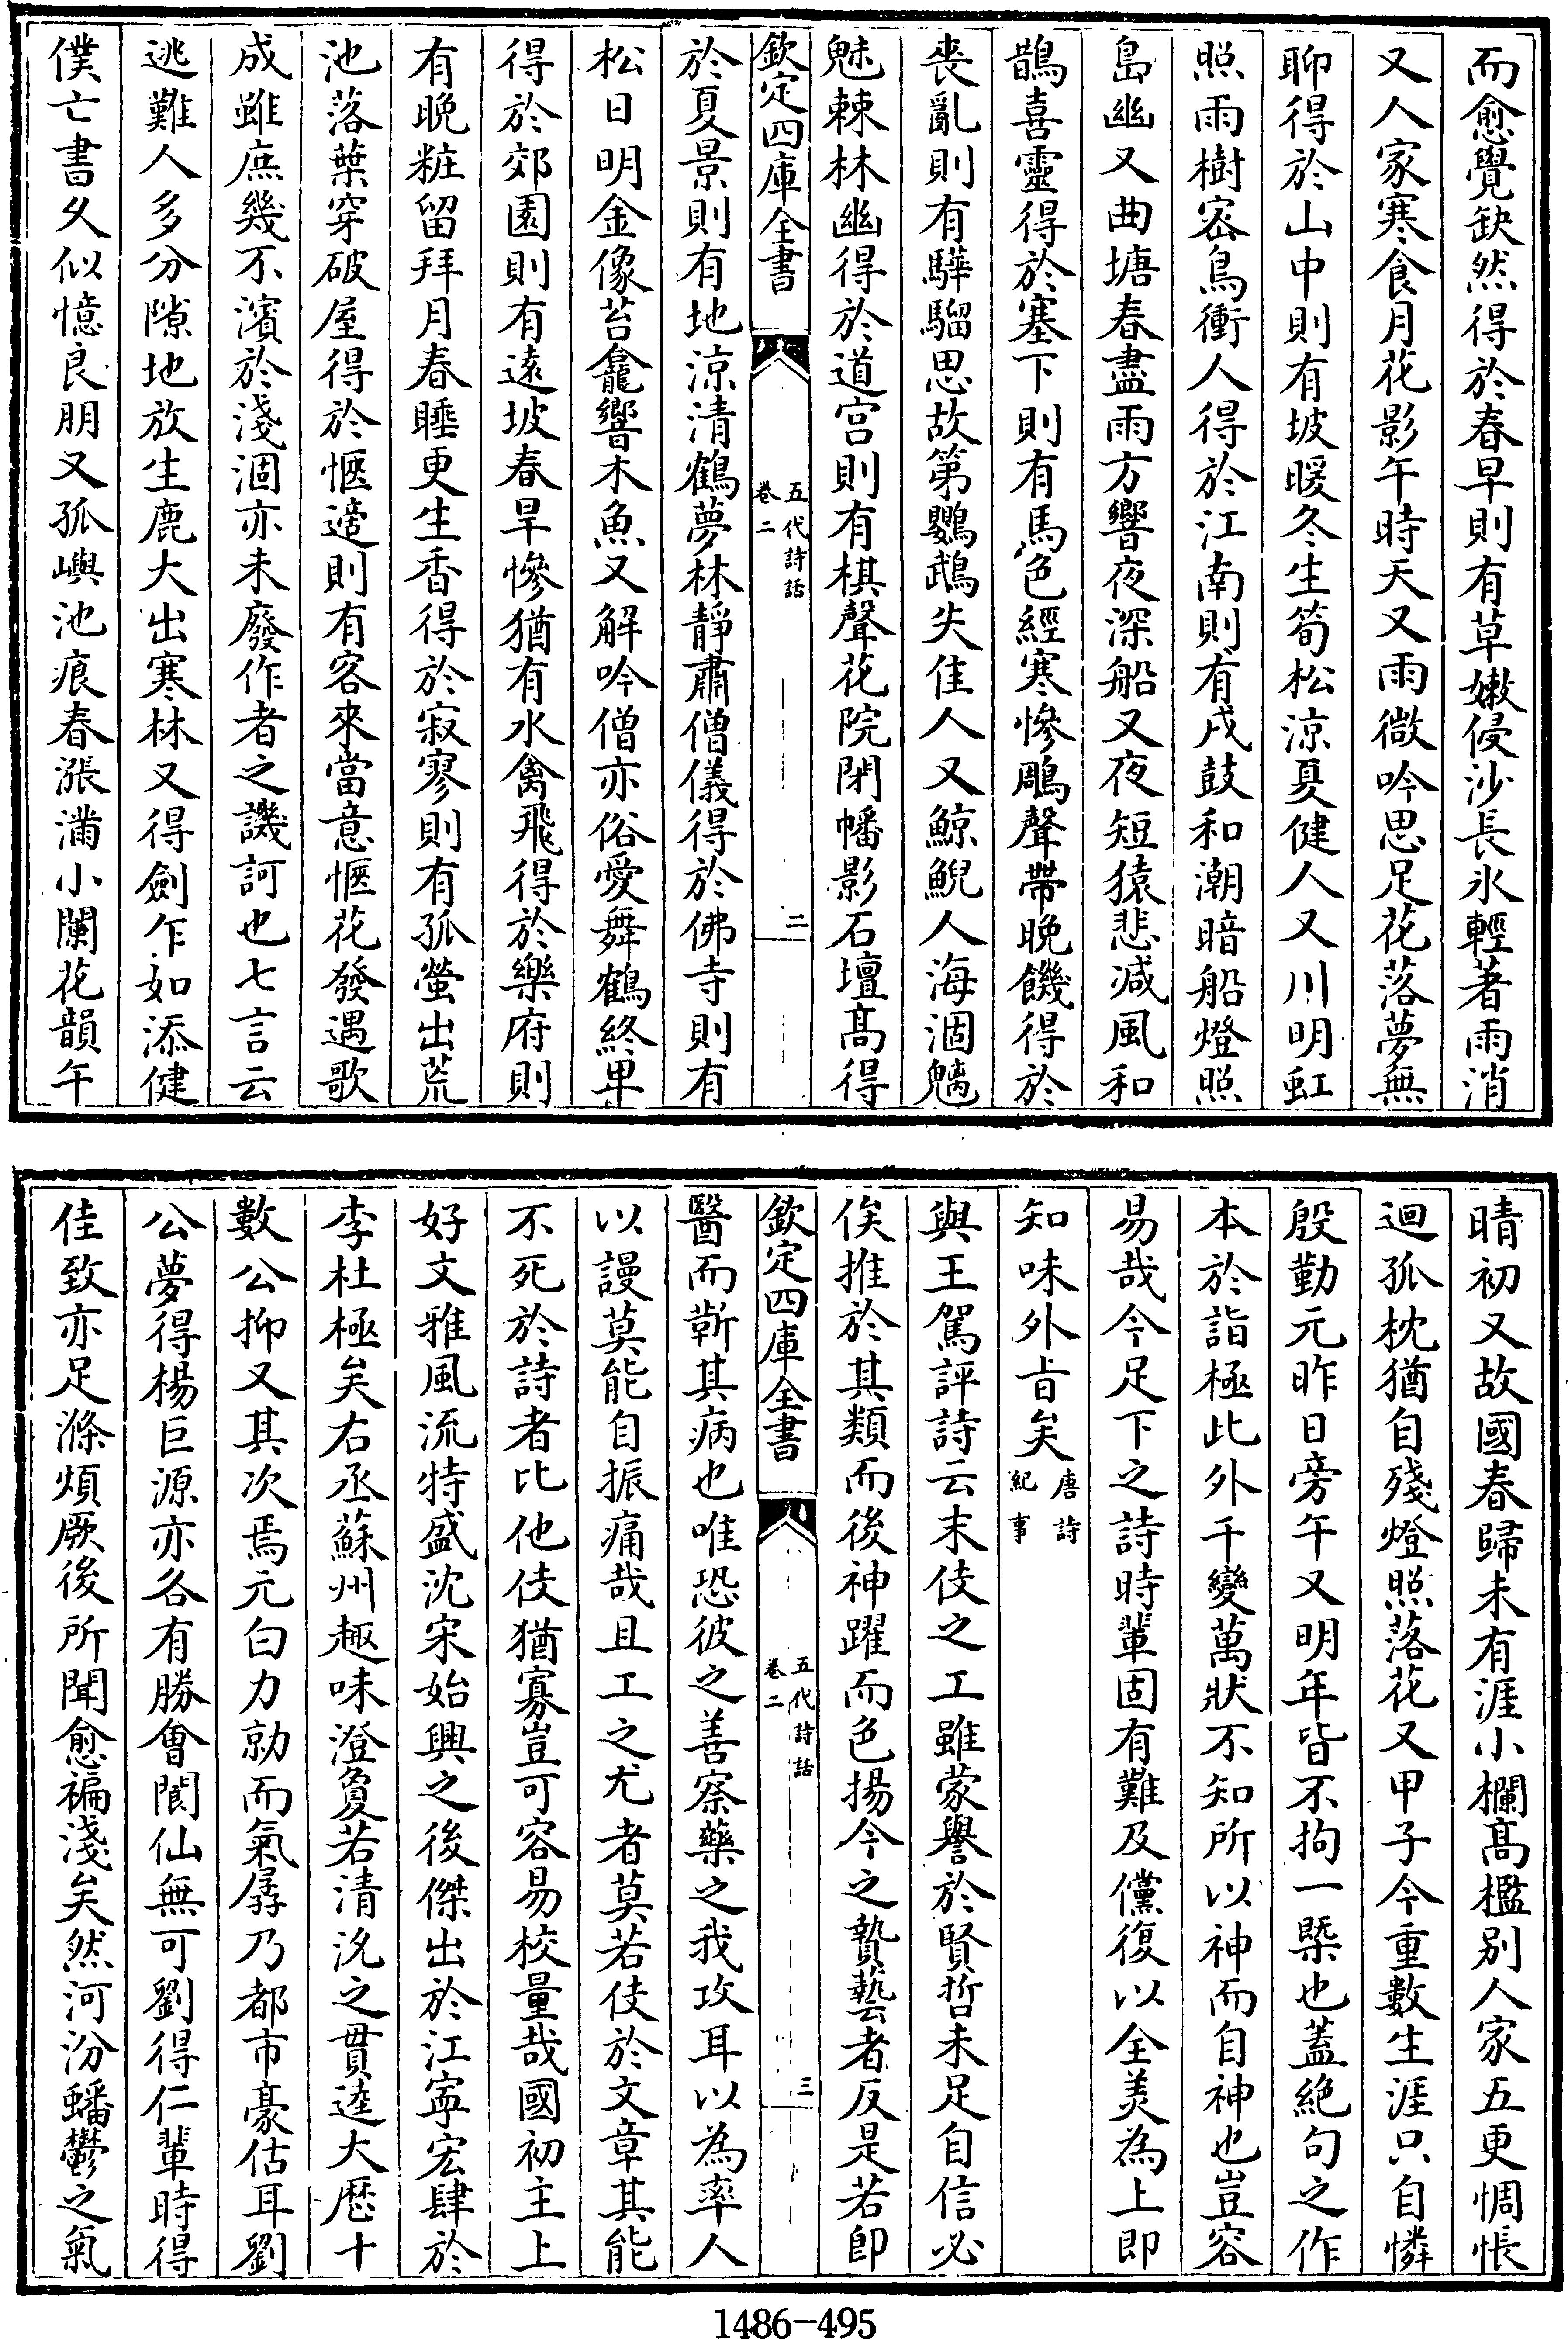 而愈覺缺然得於春早則有草嫩侵沙長氷輕著雨消
又人家寒食月花影午時天又雨微吟思足花落夢無
聊得於山中則有坡暖冬生筍松涼夏健人又川明虹
照雨樹密鳥衝人得於江南則有戍鼓和潮暗船燈照
島幽又曲塘春盡雨方響夜深船又夜短猿悲減風和
鵲喜靈得於塞下則有馬色經寒慘鵰聲帶晚饑得於
喪亂則有驊騮思故第鸚鵡失佳人又鯨鯢人海涸魑
魅棘林幽得於道宫則有棋聲花院閉幡影石壇髙得
欽定四庫全書
五代詩話
卷二
二
於夏景則有地涼清鶴夢林靜肅僧儀得於佛寺則有
松日明金像苔龕響木魚又解吟僧亦俗愛舞鶴終卑
得於郊園則有逺坡春旱慘猶有水禽飛得於樂府則
有晩粧留拜月春睡更生香得於寂寥則有孤螢出荒
池落葉穿破屋得於愜適則有客來當意愜花發遇歌
成雖庶幾不濱於淺涸亦未廢作者之譏訶也七言云
逃難人多分隙地放生鹿大出寒林又得劍乍如添健
僕亡書久似憶良朋又孤嶼池痕春漲滿小闌花韻午
晴初又故國春歸未有涯小欄髙檻别人家五更惆悵
迴孤枕猶自殘燈照落花又甲子今重數生涯只自憐
殷勤元昨日旁午又明年皆不拘一槩也蓋絶句之作
本於詣極此外千變萬狀不知所以神而自神也豈容
易哉今足下之詩時輩固有難及儻復以全美為上即
知味外旨矣唐詩
紀事
與王駕評詩云末伎之工雖蒙譽於賢哲未足自信必
俟推於其類而後神躍而色揚今之贄藝者反是若即
欽定四庫全書
五代詩話
卷二
三
醫而靳其病也唯恐彼之善察藥之我攻耳以為率人
以謾莫能自振痛哉且工之尤者莫若伎於文章其能
不死於詩者比他伎猶寡豈可容易校量哉國初主上
好文雅風流特盛沈宋始興之後傑出於江寧宏肆於
李杜極矣右丞蘇州趣味澄敻若清沇之貫逵大厯十
數公抑又其次焉元白力勍而氣孱乃都市豪估耳劉
公夢得楊巨源亦各有勝㑹閬仙無可劉得仁輩時得
佳致亦足滌煩厥後所聞愈褊淺矣然河汾蟠鬱之氣
1486-495